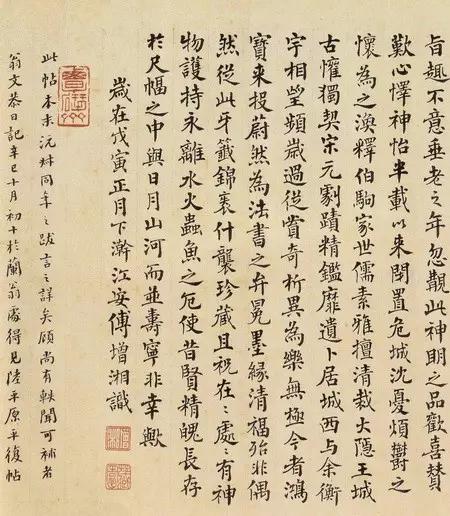 旨趣不意垂老之年忽覯此神明之品歡喜贊
歎心懌神怡半載以来閒置危城沈憂煩鬱之
懷為之渙釋伯駒家世儒素雅擅清裁大隱王城
古懽獨契宋元劇蹟精鑑靡遺卜居城西与余衡
宇相望頻歲過從賞奇析異為樂無極今者鴻
寶来投蔚然為法書之弁冕墨緣清福殆非偶
然從此牙籤錦裹什襲珍藏且祝在〻處〻有神
物護持永離水火蟲魚之厄使昔賢精魄長存
於尺幅之中與日月山河而並壽寧非幸歟
歲在戊寅正月下澣江安傅增湘識
此帖本末沅叔同年之跋言之詳矣顧尚有軼聞可補者
翁文恭日記辛巳十月初十於蘭翁處得見陸平原平復帖